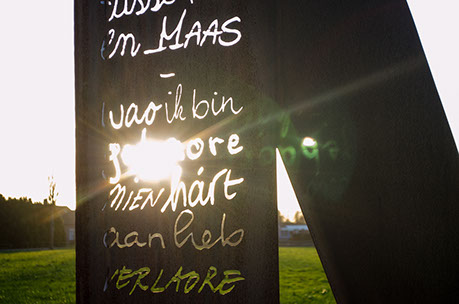 en MAAS
–
wao ik bin
gebaore
MIEN hárt
aan heb
VERLAORE